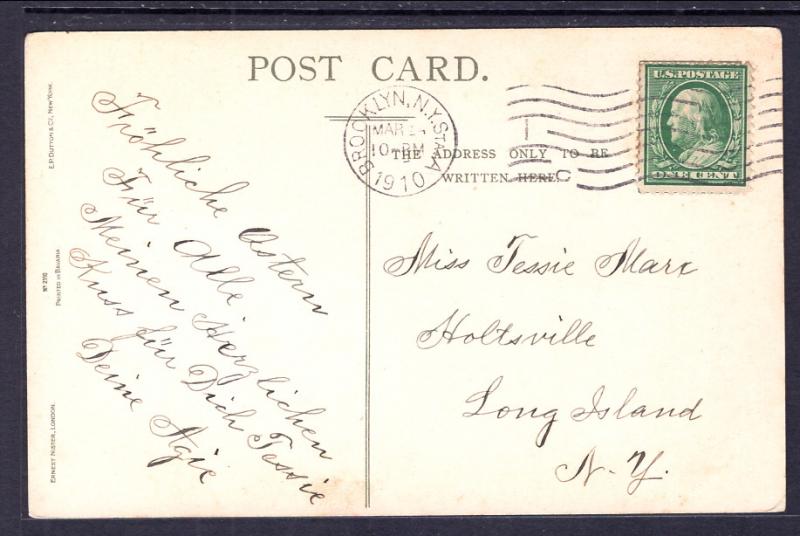 POST CARD.
BROOKLYN, N.Y. STA. A
MAR
10-PM
1910
U.S. POSTAGE
ONE CENT
THE ADDRESS ONLY TO BE
WRITTEN HERE.
E.P. DUTTON & CO., NEW YORK.
Nº 2110
PRINTED IN BAVARIA
ERNEST NISTER, LONDON.
Fröhliche Ostern
Für Alle
Meinen Herzlichen
Kuss für Dich Tessie
Deine Agie
Miss Tessie Marx
Holtsville
Long Island
N.Y.